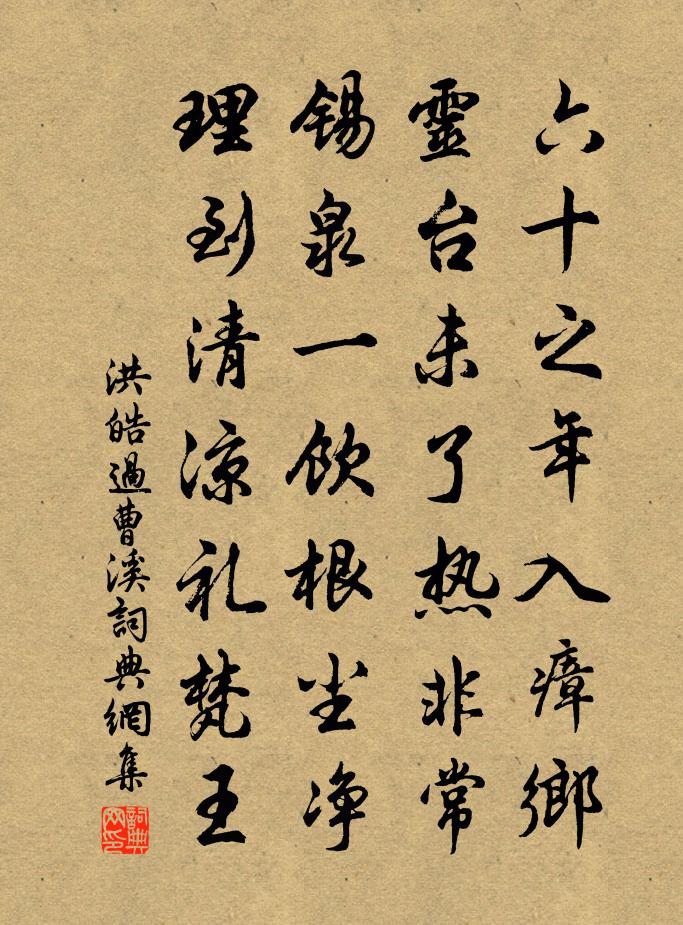 六十之年入瘴鄉
靈台未了热非常
锡泉一飲根尘净
理到清凉礼梵王
洪皓過曹溪詞典網集
詞典网印